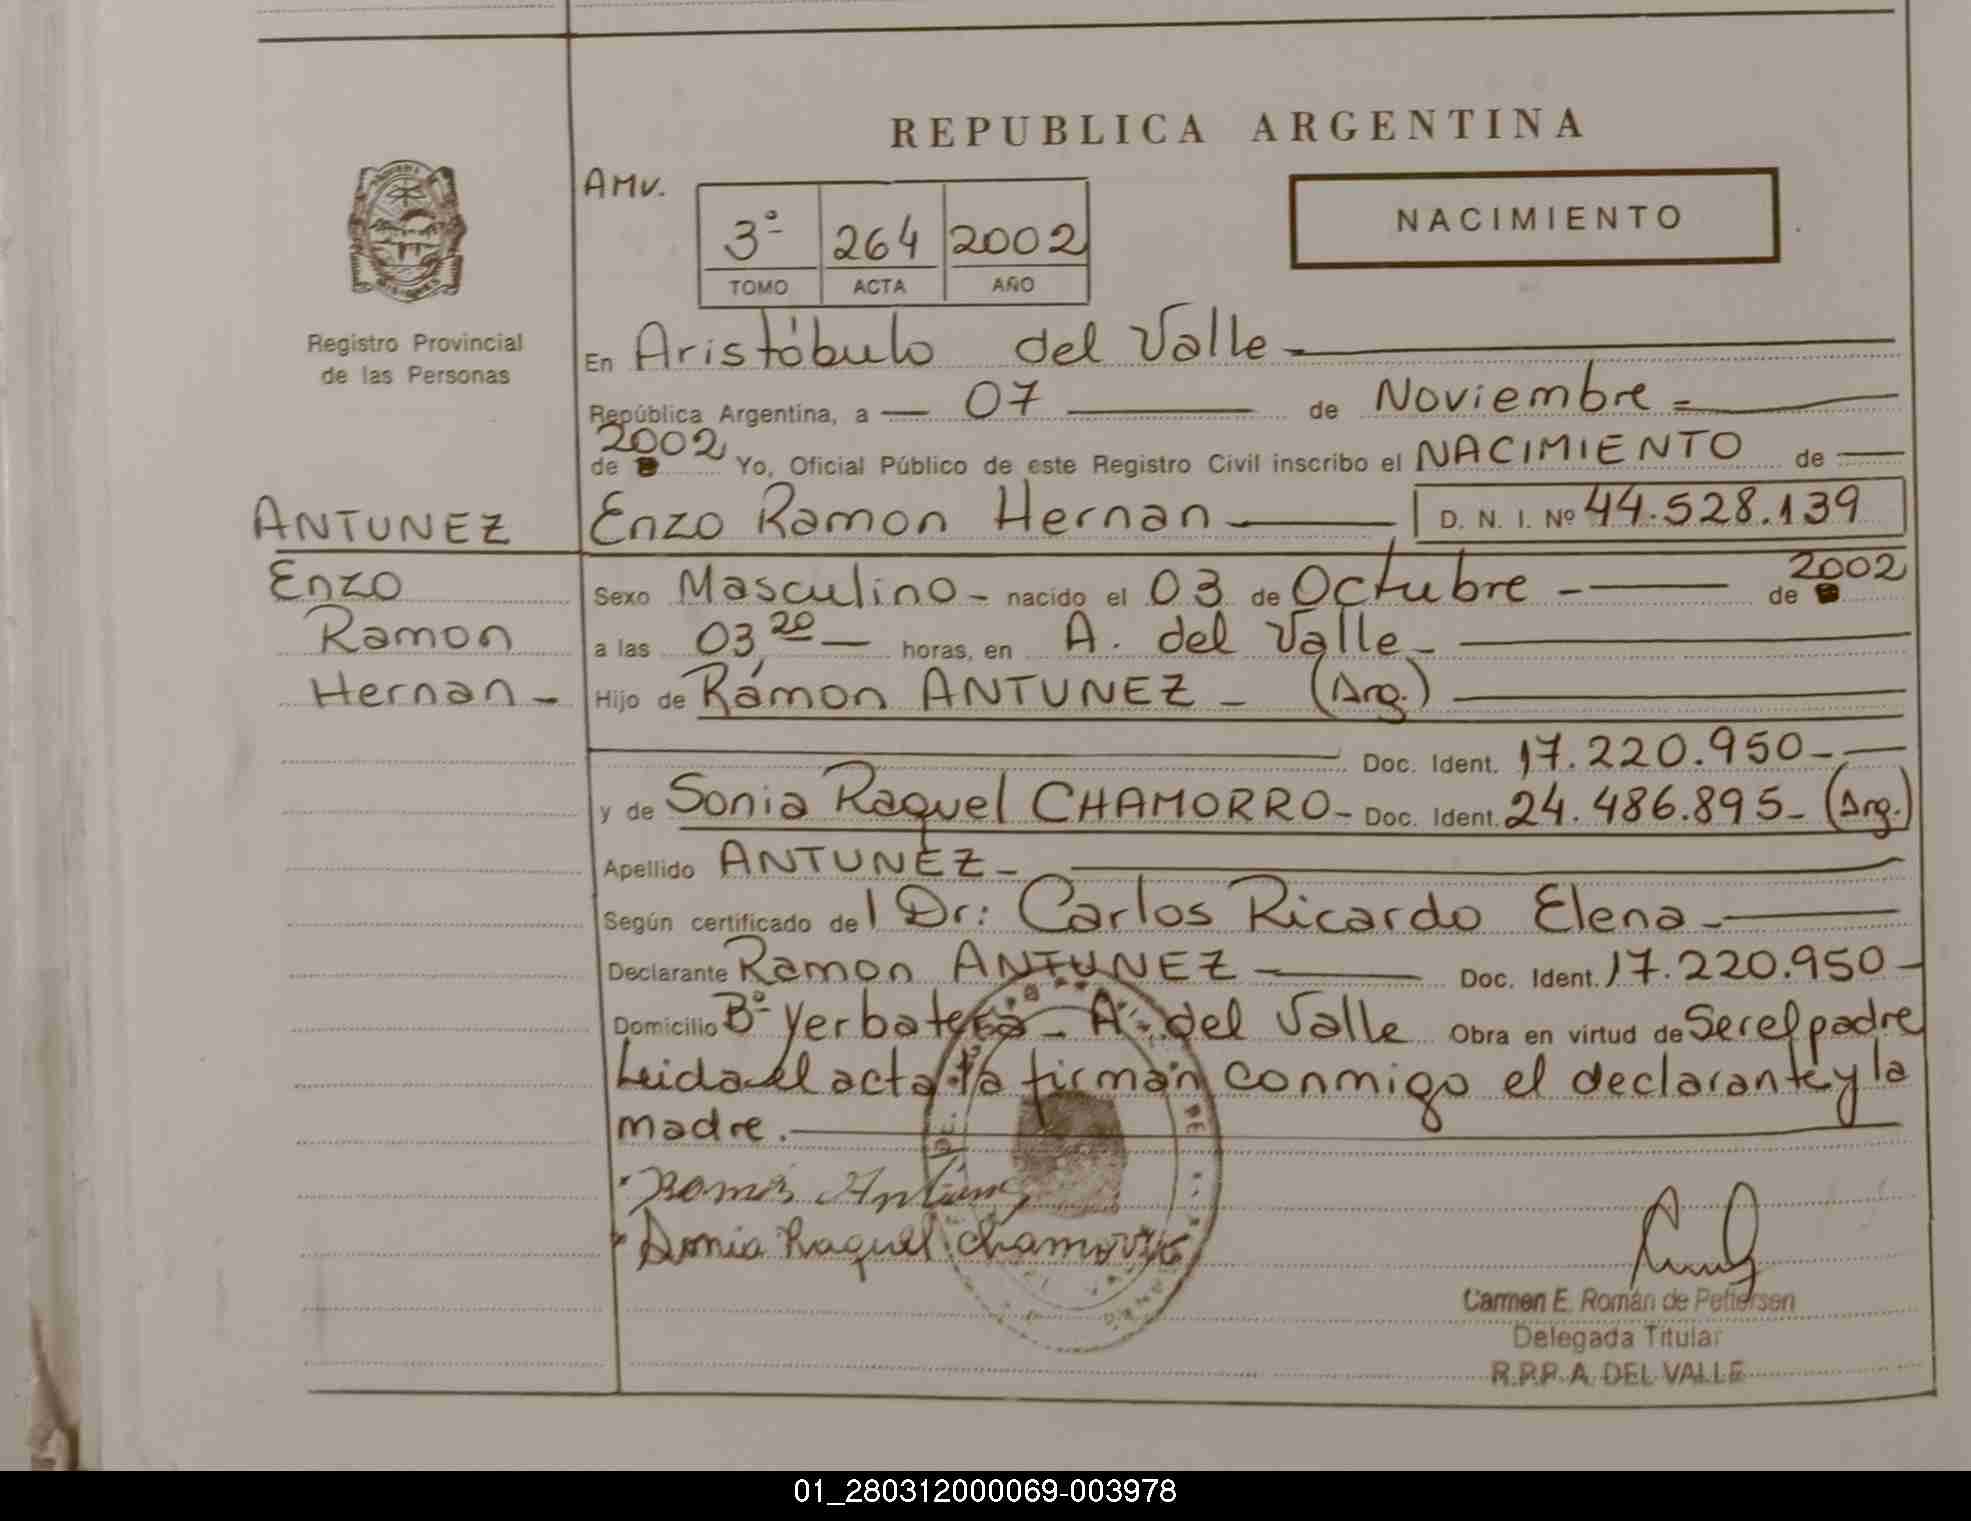 REPUBLICA ARGENTINA
AMV.
3º 264 2002
TOMO ACTA AÑO
NACIMIENTO
Registro Provincial
de las Personas
En Aristóbulo del Valle
República Argentina, a 07 de Noviembre
de 2002 Yo, Oficial Público de este Registro Civil inscribo el NACIMIENTO de
ANTUNEZ
Enzo
Ramon
Hernan
Enzo Ramon Hernan D. N. I. Nº 44.528.139
Sexo Masculino nacido el 03 de Octubre de 2002
a las 03,20 horas, en A. del Valle
Hijo de Rámon ANTUNEZ (Arg.)
Doc. Ident. 17.220.950
y de Sonia Raquel CHAMORRO Doc. Ident. 24.486.895 (Arg.)
Apellido ANTUNEZ
Según certificado del Dr: Carlos Ricardo Elena
Declarante Ramon ANTUNEZ Doc. Ident. 17.220.950
Domicilio Bº Yerbatera A. del Valle Obra en virtud de Ser el padre
Leida el acta la firman conmigo el declarante y la
madre.
Sonia Raquel Chamorro
Carmen E. Román de Petersen
Delegada Titular
R.P.P. A. DEL VALLE
01_280312000069-003978